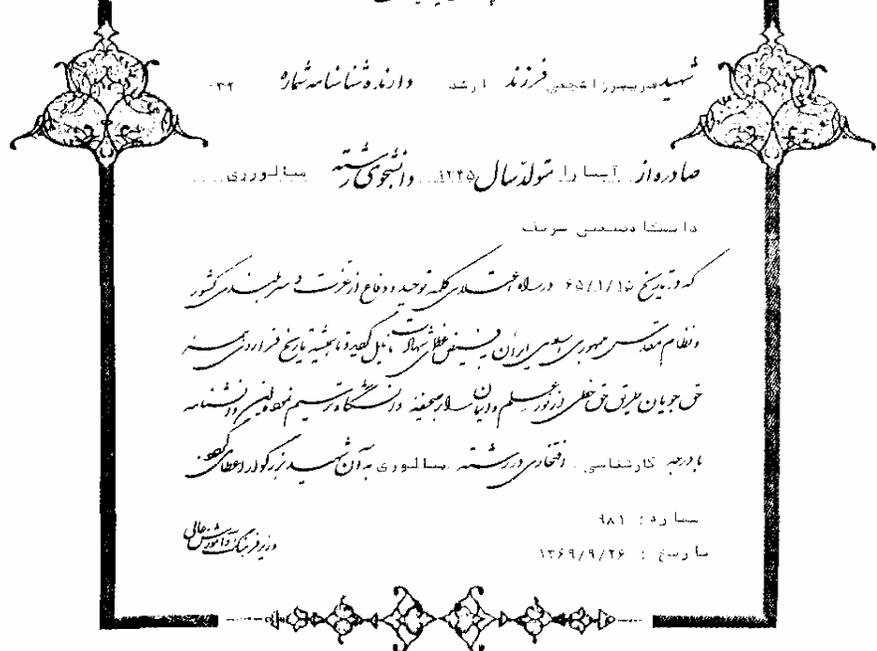 شهید فریبرز انجمنی فرزند ارشد دارنده شناسنامه شماره ۰۳۲
صادره از آستارا متولد سال ۱۳۴۵ دانشجوی رشته متالورژی
دانشگاه صنعتی شریف
که در تاریخ ۶۵/۱/۱۵ در راه اعتلای کلمه توحید و دفاع از عزت و سربلندی کشور
و نظام مقدس جمهوری اسلامی ایران به فیض عظمای شهادت نایل گردیده تا همیشه تاریخ فرا راه همه
حق جویان طریق حق خطی از نور علم و ایمان بر صحیفه دانشگاه ترسیم نموده این دانشنامه
با درجه کارشناسی افتخاری در رشته متالورژی به آن شهید بزرگوار اعطا می گردد
شماره : ۹۸۱
وزیر فرهنگ و آموزش عالی
تاریخ : ۱۳۶۹/۹/۲۶